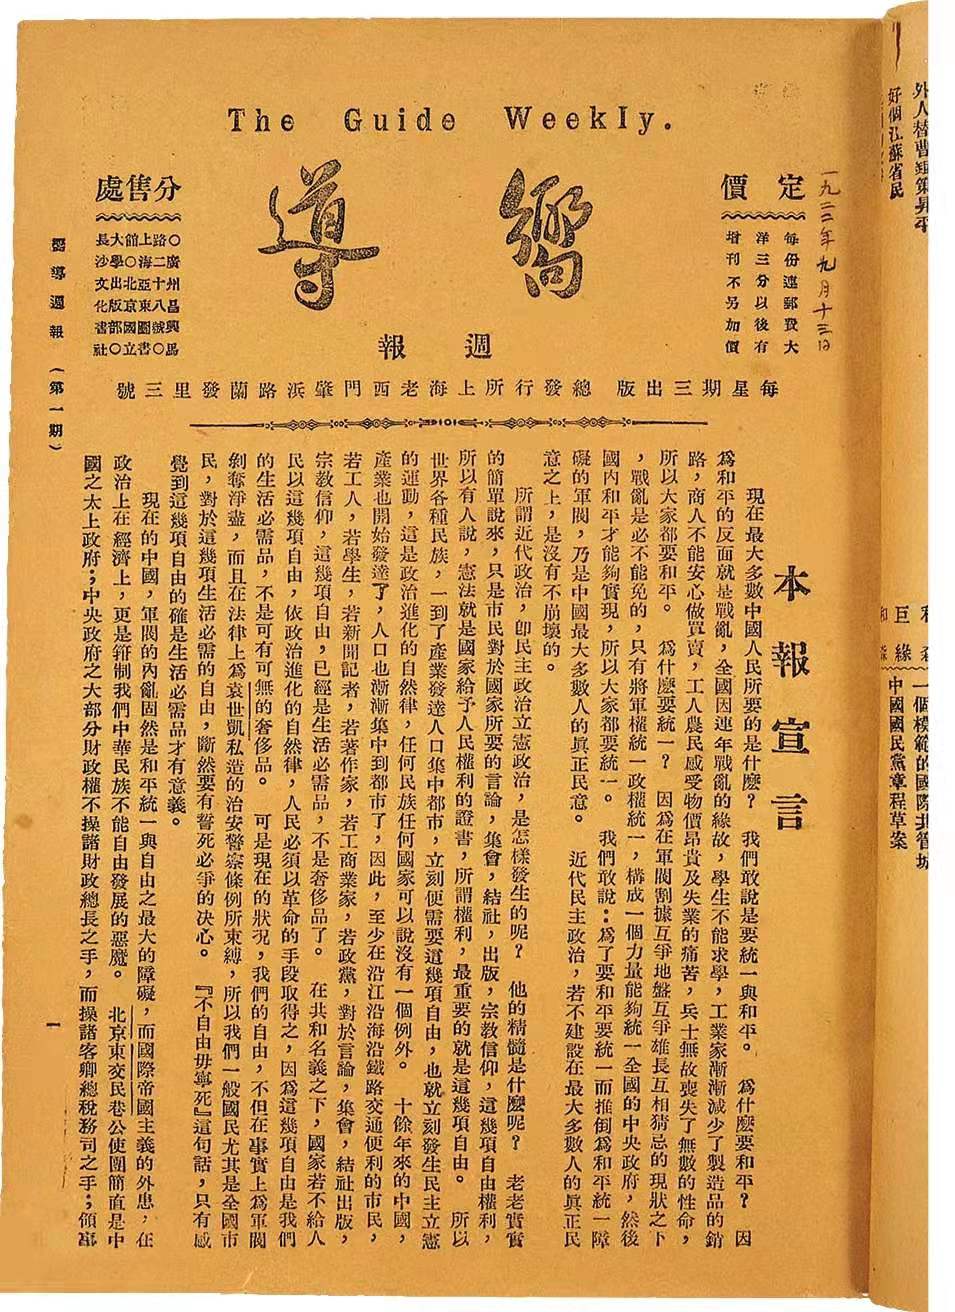 The Guide Weekly.
嚮導
週報
定價
每份連郵費大
洋三分以後有
增刊不另加價
一九二二年九月十三日
分售處
○廣州昌興馬
路二十八號○
上海亞東圖書
館○北京國立
大學出版部○
長沙文化書社
每星期三出版 總發行所上海老西門肇浜路蘭發里三號
本報宣言
現在最大多數中國人民所要的是什麽?我們敢說是要統一與和平。爲什麽要和平?因
爲和平的反面就是戰亂,全國因連年戰亂的緣故,學生不能求學,工業家漸漸減少了製造品的銷
路,商人不能安心做買賣,工人農民感受物價昂貴及失業的痛苦,兵士無故喪失了無數的性命,
所以大家都要和平。爲什麽要統一?因爲在軍閥割據互爭地盤互爭雄長互相猜忌的現狀之下
,戰亂是必不能免的,只有將軍權統一政權統一,構成一個力量能夠統一全國的中央政府,然後
國內和平才能夠實現,所以大家都要統一。我們敢說:爲了要和平要統一而推倒爲和平統一障
礙的軍閥,乃是中國最大多數人的眞正民意。近代民主政治,若不建設在最大多數人的眞正民
意之上,是沒有不崩壞的。
所謂近代政治,卽民主政治立憲政治,是怎樣發生的呢?他的精髓是什麽呢?老老實實
的簡單說來,只是市民對於國家所要的言論,集會,結社,出版,宗教信仰,這幾項自由權利,
所以有人說,憲法就是國家給予人民權利的證書,所謂權利,最重要的就是這幾項自由。所以
世界各種民族,一到了產業發達人口集中都市,立刻便需要這幾項自由,也就立刻發生民主立憲
的運動,這是政治進化的自然律,任何民族任何國家可以說沒有一個例外。十餘年來的中國,
產業也開始發達了,人口也漸漸集中到都市了,因此,至少在沿江沿海沿鐵路交通便利的市民,
若工人,若學生,若新聞記者,若著作家,若工商業家,若政黨,對於言論,集會,結社出版,
宗教信仰,這幾項自由,已經是生活必需品,不是奢侈品了。在共和名義之下,國家若不給人
民以這幾項自由,依政治進化的自然律,人民必須以革命的手段取得之,因爲這幾項自由是我們
的生活必需品,不是可有可無的奢侈品。可是現在的狀況,我們的自由,不但在事實上爲軍閥
剝奪淨盡,而且在法律上爲袁世凱私造的治安警察條例所束縛,所以我們一般國民尤其是全國市
民,對於這幾項生活必需的自由,斷然要有誓死必爭的決心。『不自由毋寧死』這句話,只有感
覺到這幾項自由的確是生活必需品才有意義。
現在的中國,軍閥的內亂固然是和平統一與自由之最大的障礙,而國際帝國主義的外患,在
政治上在經濟上,更是箝制我們中華民族不能自由發展的惡魔。北京東交民巷公使團簡直是中
國之太上政府;中央政府之大部分財政權不操諸財政總長之手,而操諸客卿總稅務司之手;領事
嚮導週報(第一期)
一
外人替曹
好個江蘇省民
一個模範的國際共管城
中國國民黨章程草案